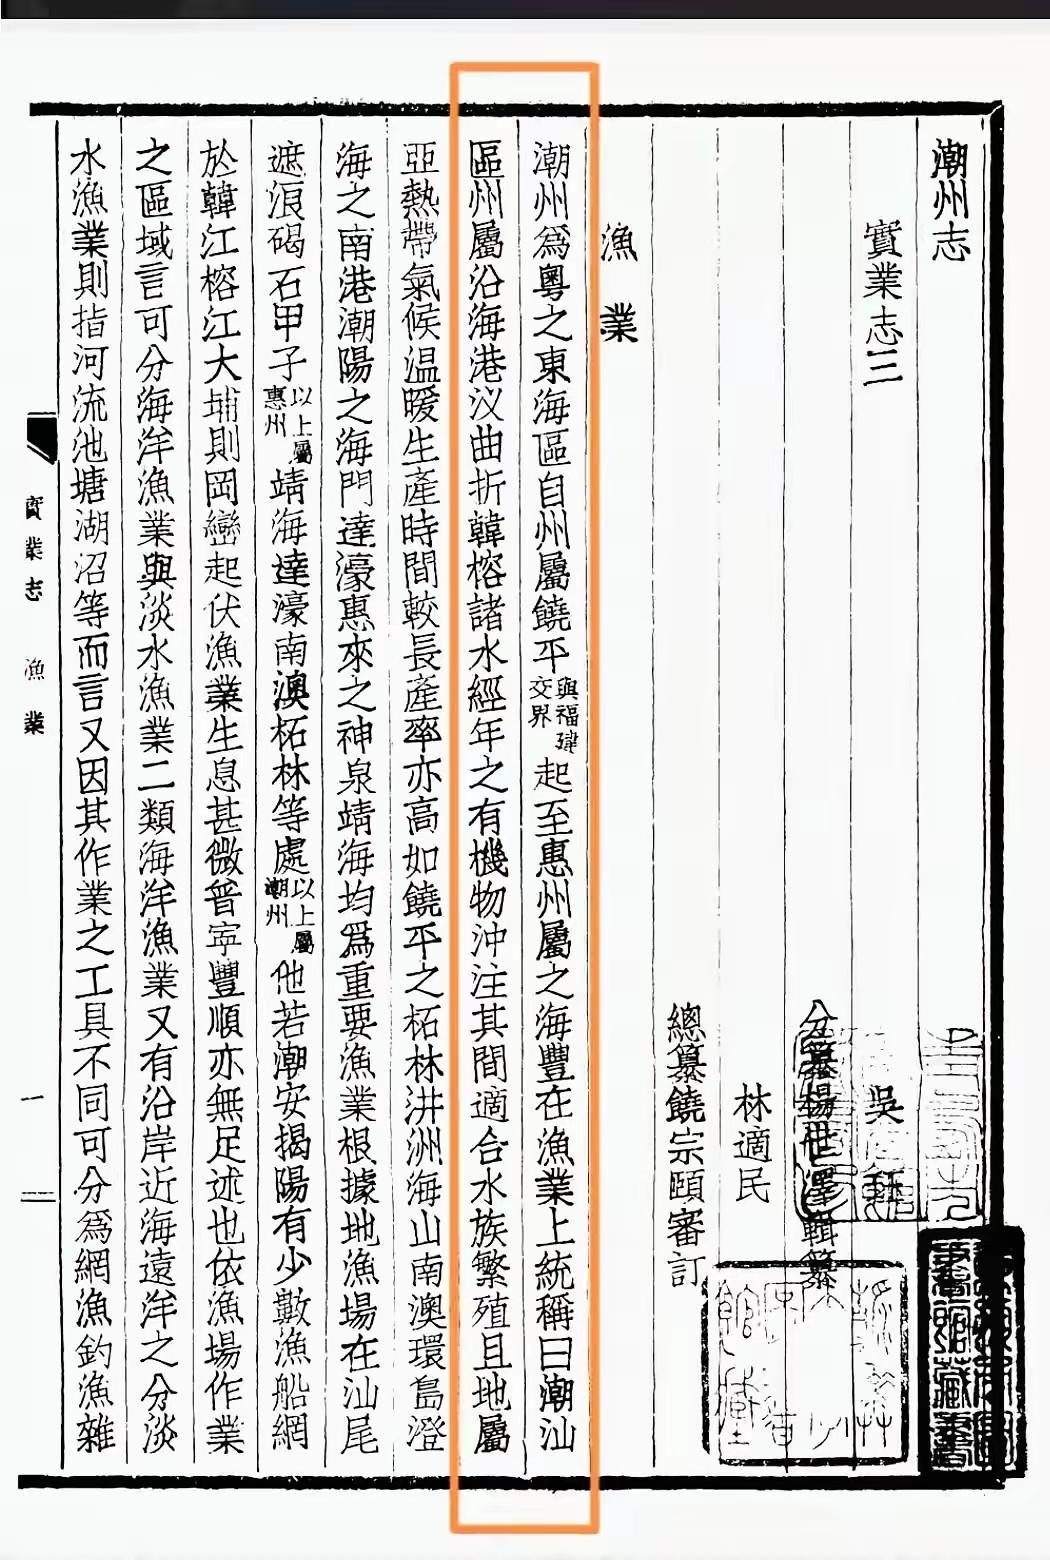 潮州志
實業志三
吳珏
分纂楊世澤輯纂
林適民
總纂饒宗頤審訂
漁業
潮州為粵之東海區自州屬饒平與福建交界起至惠州屬之海豐在漁業上統稱曰潮汕
區州屬沿海港汊曲折韓榕諸水經年之有機物沖注其間適合水族繁殖且地屬
亞熱帶氣候温暖生產時間較長產率亦高如饒平之柘林汫洲海山南澳環島澄
海之南港潮陽之海門達濠惠來之神泉靖海均為重要漁業根據地漁場在汕尾
遮浪碣石甲子以上屬惠州靖海達濠南澳柘林等處以上屬潮州他若潮安揭陽有少數漁船網
於韓江榕江大埔則岡巒起伏漁業生息甚微普寧豐順亦無足述也依漁場作業
之區域言可分海洋漁業與淡水漁業二類海洋漁業又有沿岸近海遠洋之分淡
水漁業則指河流池塘湖沼等而言又因其作業之工具不同可分為網漁釣漁雜
實業志 漁業
一